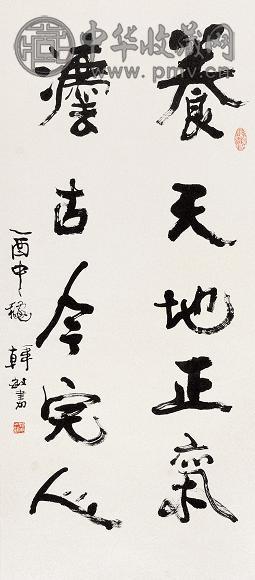 中华收藏网
www.pmv.cn
養天地正氣
灋古今完人
乙酉中穐 韓敏書